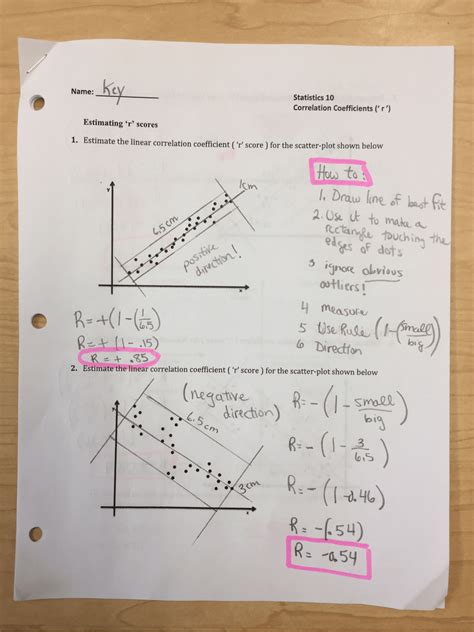 Name: Key
Statistics 10
Correlation Coefficients ('r')
Estimating 'r' scores
1. Estimate the linear correlation coefficient ('r' score) for the scatter-plot shown below
How to:
1. Draw line of best fit
2. Use it to make a
rectangle touching the
edges of dots
3 ignore obvious
outliers!
4 measure
5 Use Rule (1-(small/big))
6 Direction
y
1cm
6.5cm
positive
direction!
x
R=+(1-(1/6.5)
R=+(1-.15)
R=+.85
2. Estimate the linear correlation coefficient ('r' score) for the scatter-plot shown below
(negative
direction)
6.5cm
3cm
x
R=-(1-small/big)
R=-(1-3/6.5)
R=-(1-0.46)
R=-(.54)
R=-0.54